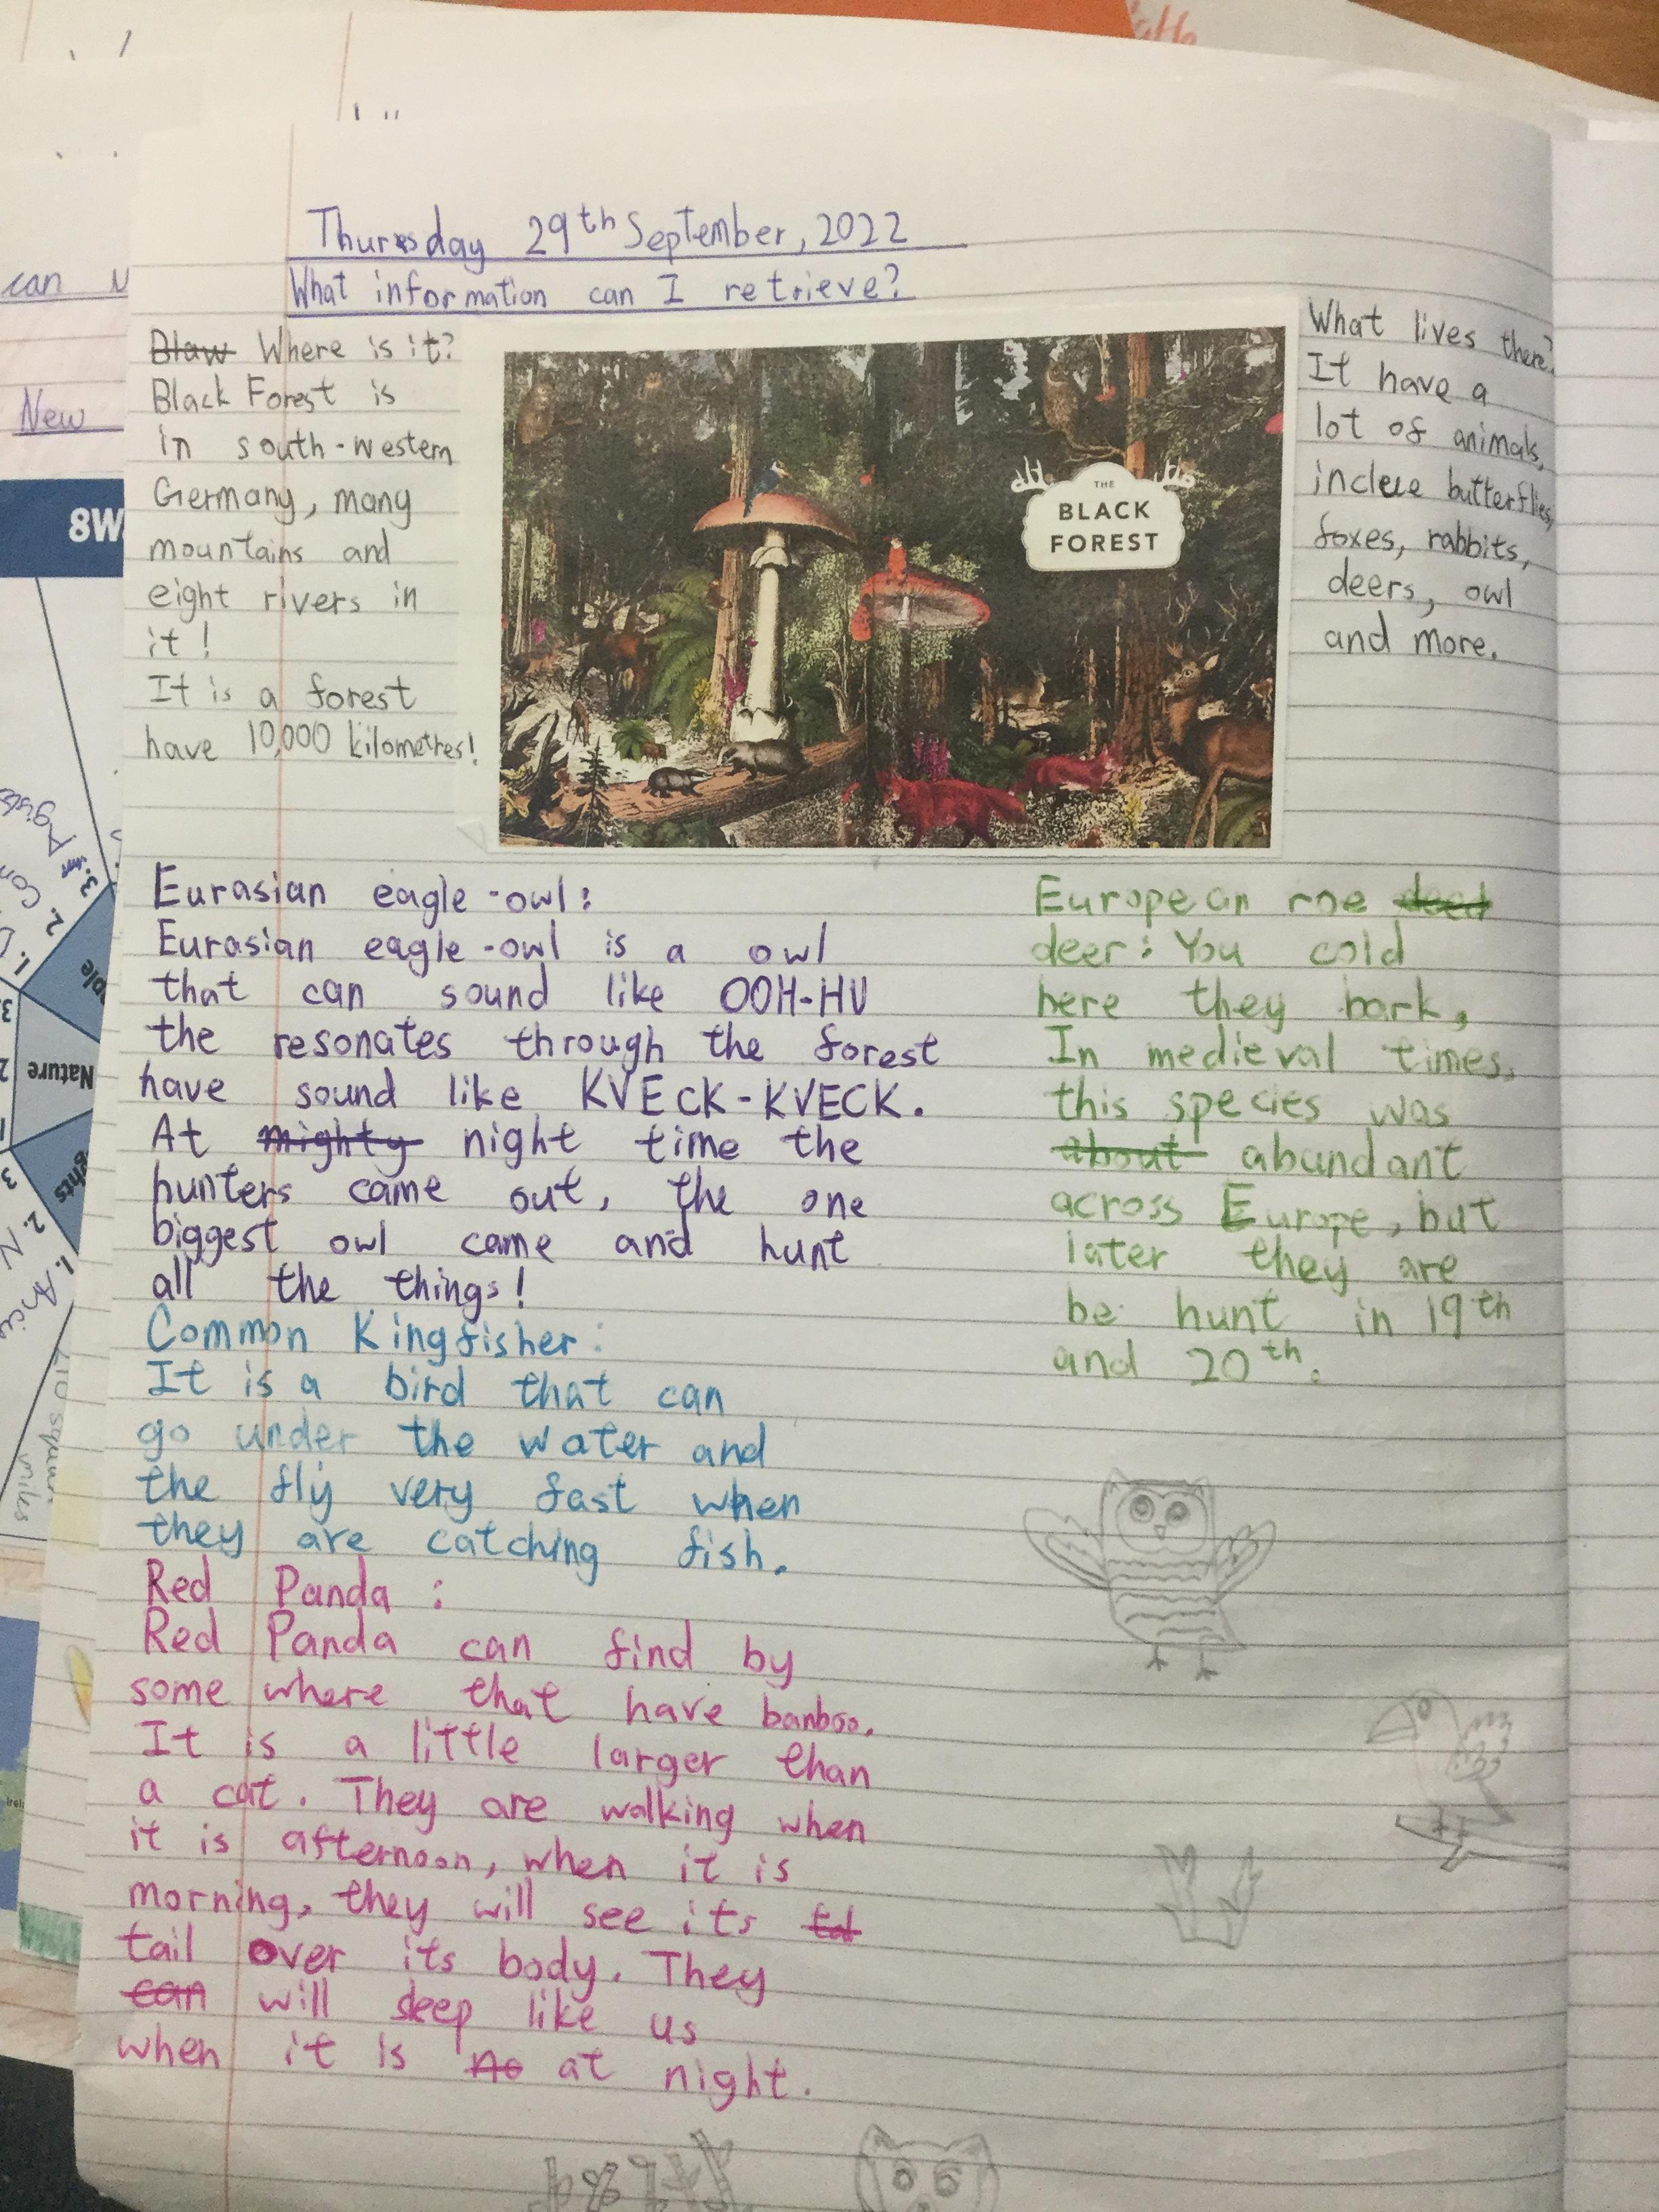 Thursday 29th September, 2022
What information can I retrieve?
Blaw Where is it?
Black Forest is
in south-western
Germany, many
mountains and
eight rivers in
it!
It is a forest
have 10,000 kilometres!
THE
BLACK
FOREST
What lives there?
It have a
lot of animals,
butterflies,
foxes, rabbits,
deers, owl
and more.
Eurasian eagle-owl:
Eurasian eagle-owl is a owl
that can sound like OOH-HU
the resonates through the forest
have sound like KVECK-KVECK.
At mighty night time the
hunters came out, the one
biggest owl came and hunt
all the things!
European roe deed
deer: You cold
here they bark,
In medieval times,
this species was
about abundant
across Europe, but
later they are
be hunt in 19th
and 20th.
Common Kingfisher:
It is a bird that can
go under the water and
the fly very fast when
they are catching fish.
Red Panda:
Red Panda can find by
some where that have banboo.
It is a little larger than
a cat. They are walking when
it is afternoon, when it is
morning, they will see its
tail over its body. They
can will sleep like us
when it is no at night.
can
New
8W
Nature
ghts
miles